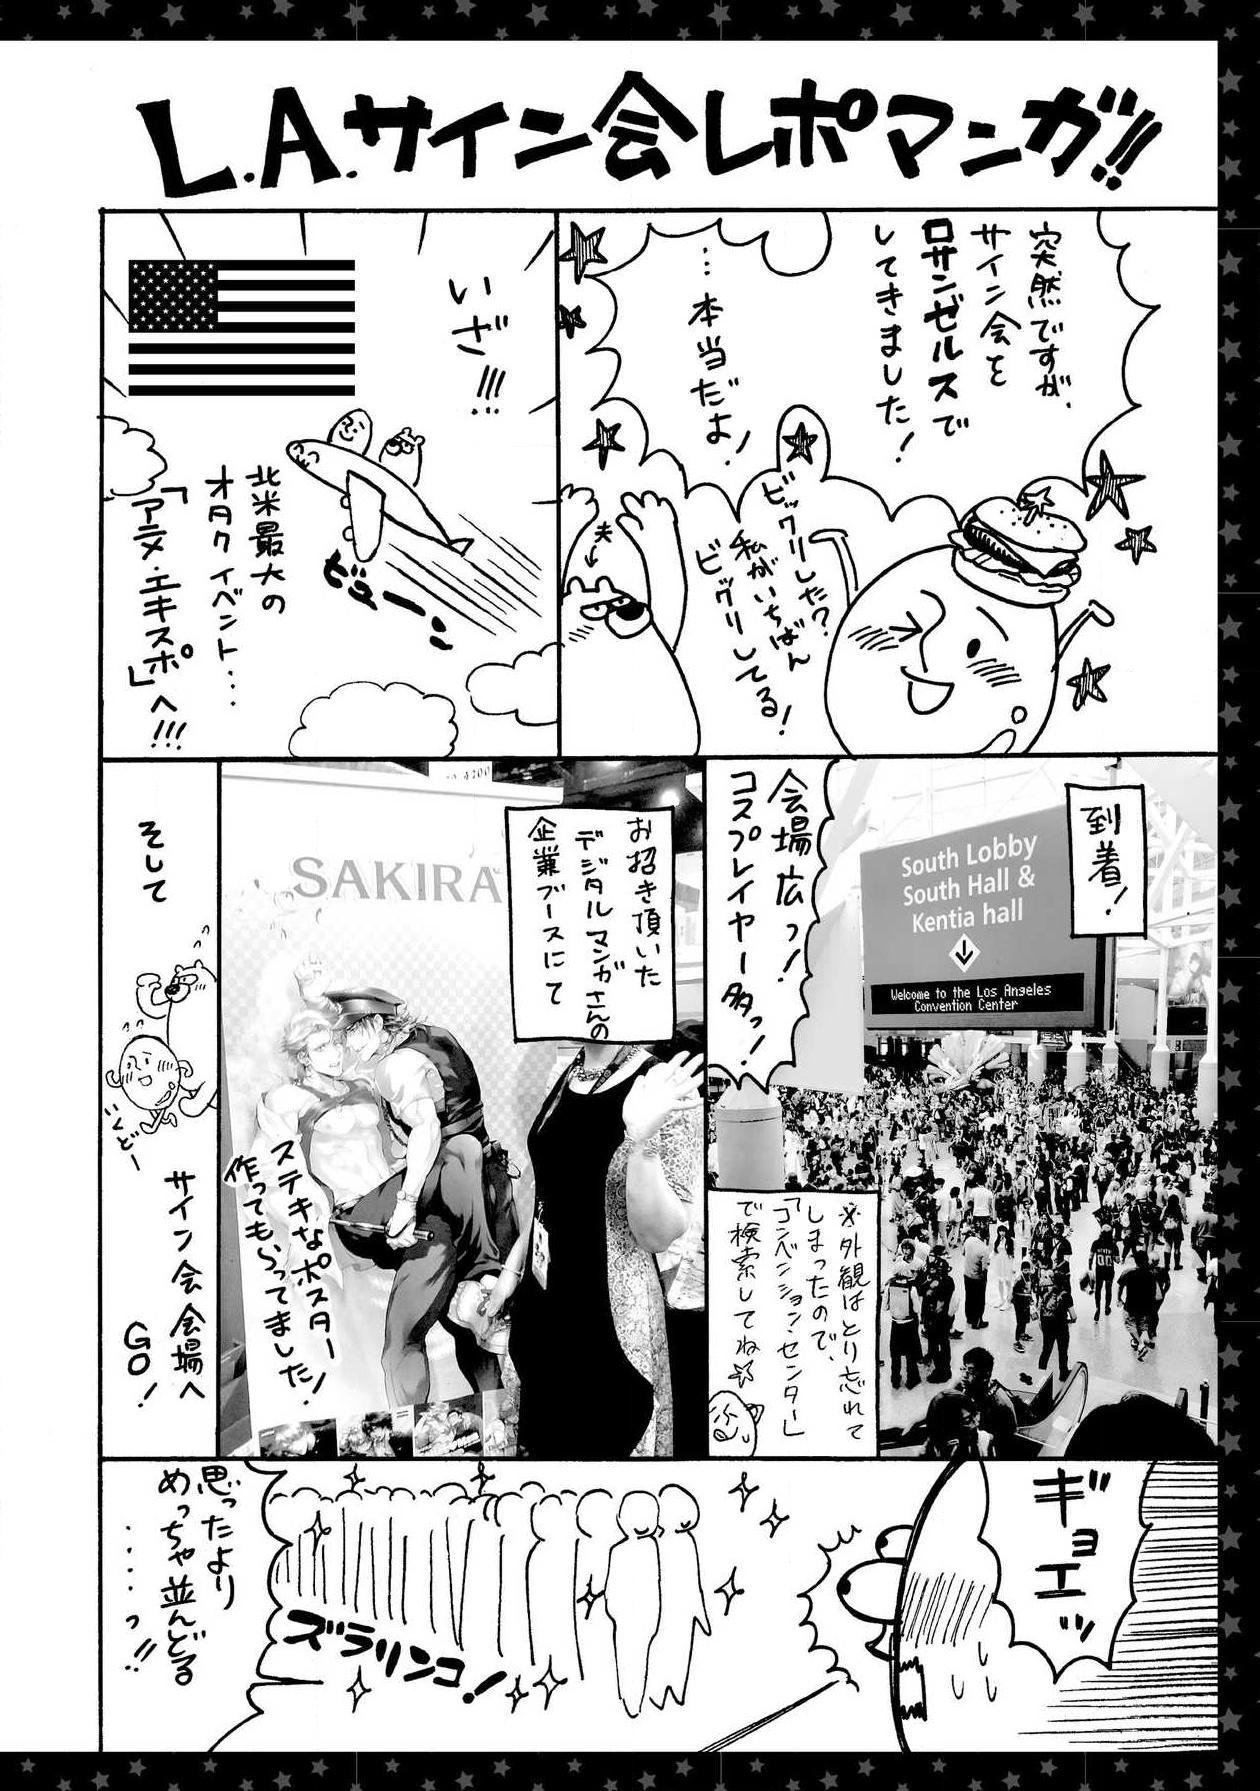 L.A.サイン会レポマンガ!!
突然ですが、
サイン会を
ロサンゼルスで
してきました！
…本当だよ！
ビックリした？
私がいちばん
ビックリしてる！
夫
いざ!!!
ビューン
北米最大の
オタクイベント…
「アニメ・エキスポ」へ!!!
到着！
South Lobby
South Hall &
Kentia hall
Welcome to the Los Angeles
Convention Center
会場広っ！
コスプレイヤー多っ！
※外観はとり忘れて
しまったので、
「コンベンション・センター」
で検索してね☆
お招き頂いた
デジタルマンガさんの
企業ブースにて
SAKIRA
ステキなポスター
作ってもらってました！
そして
いくどー
サイン会会場へ
GO！
ギョエッ
ズラリンコ！
思ったより
めっちゃ並んどる
……っ!!